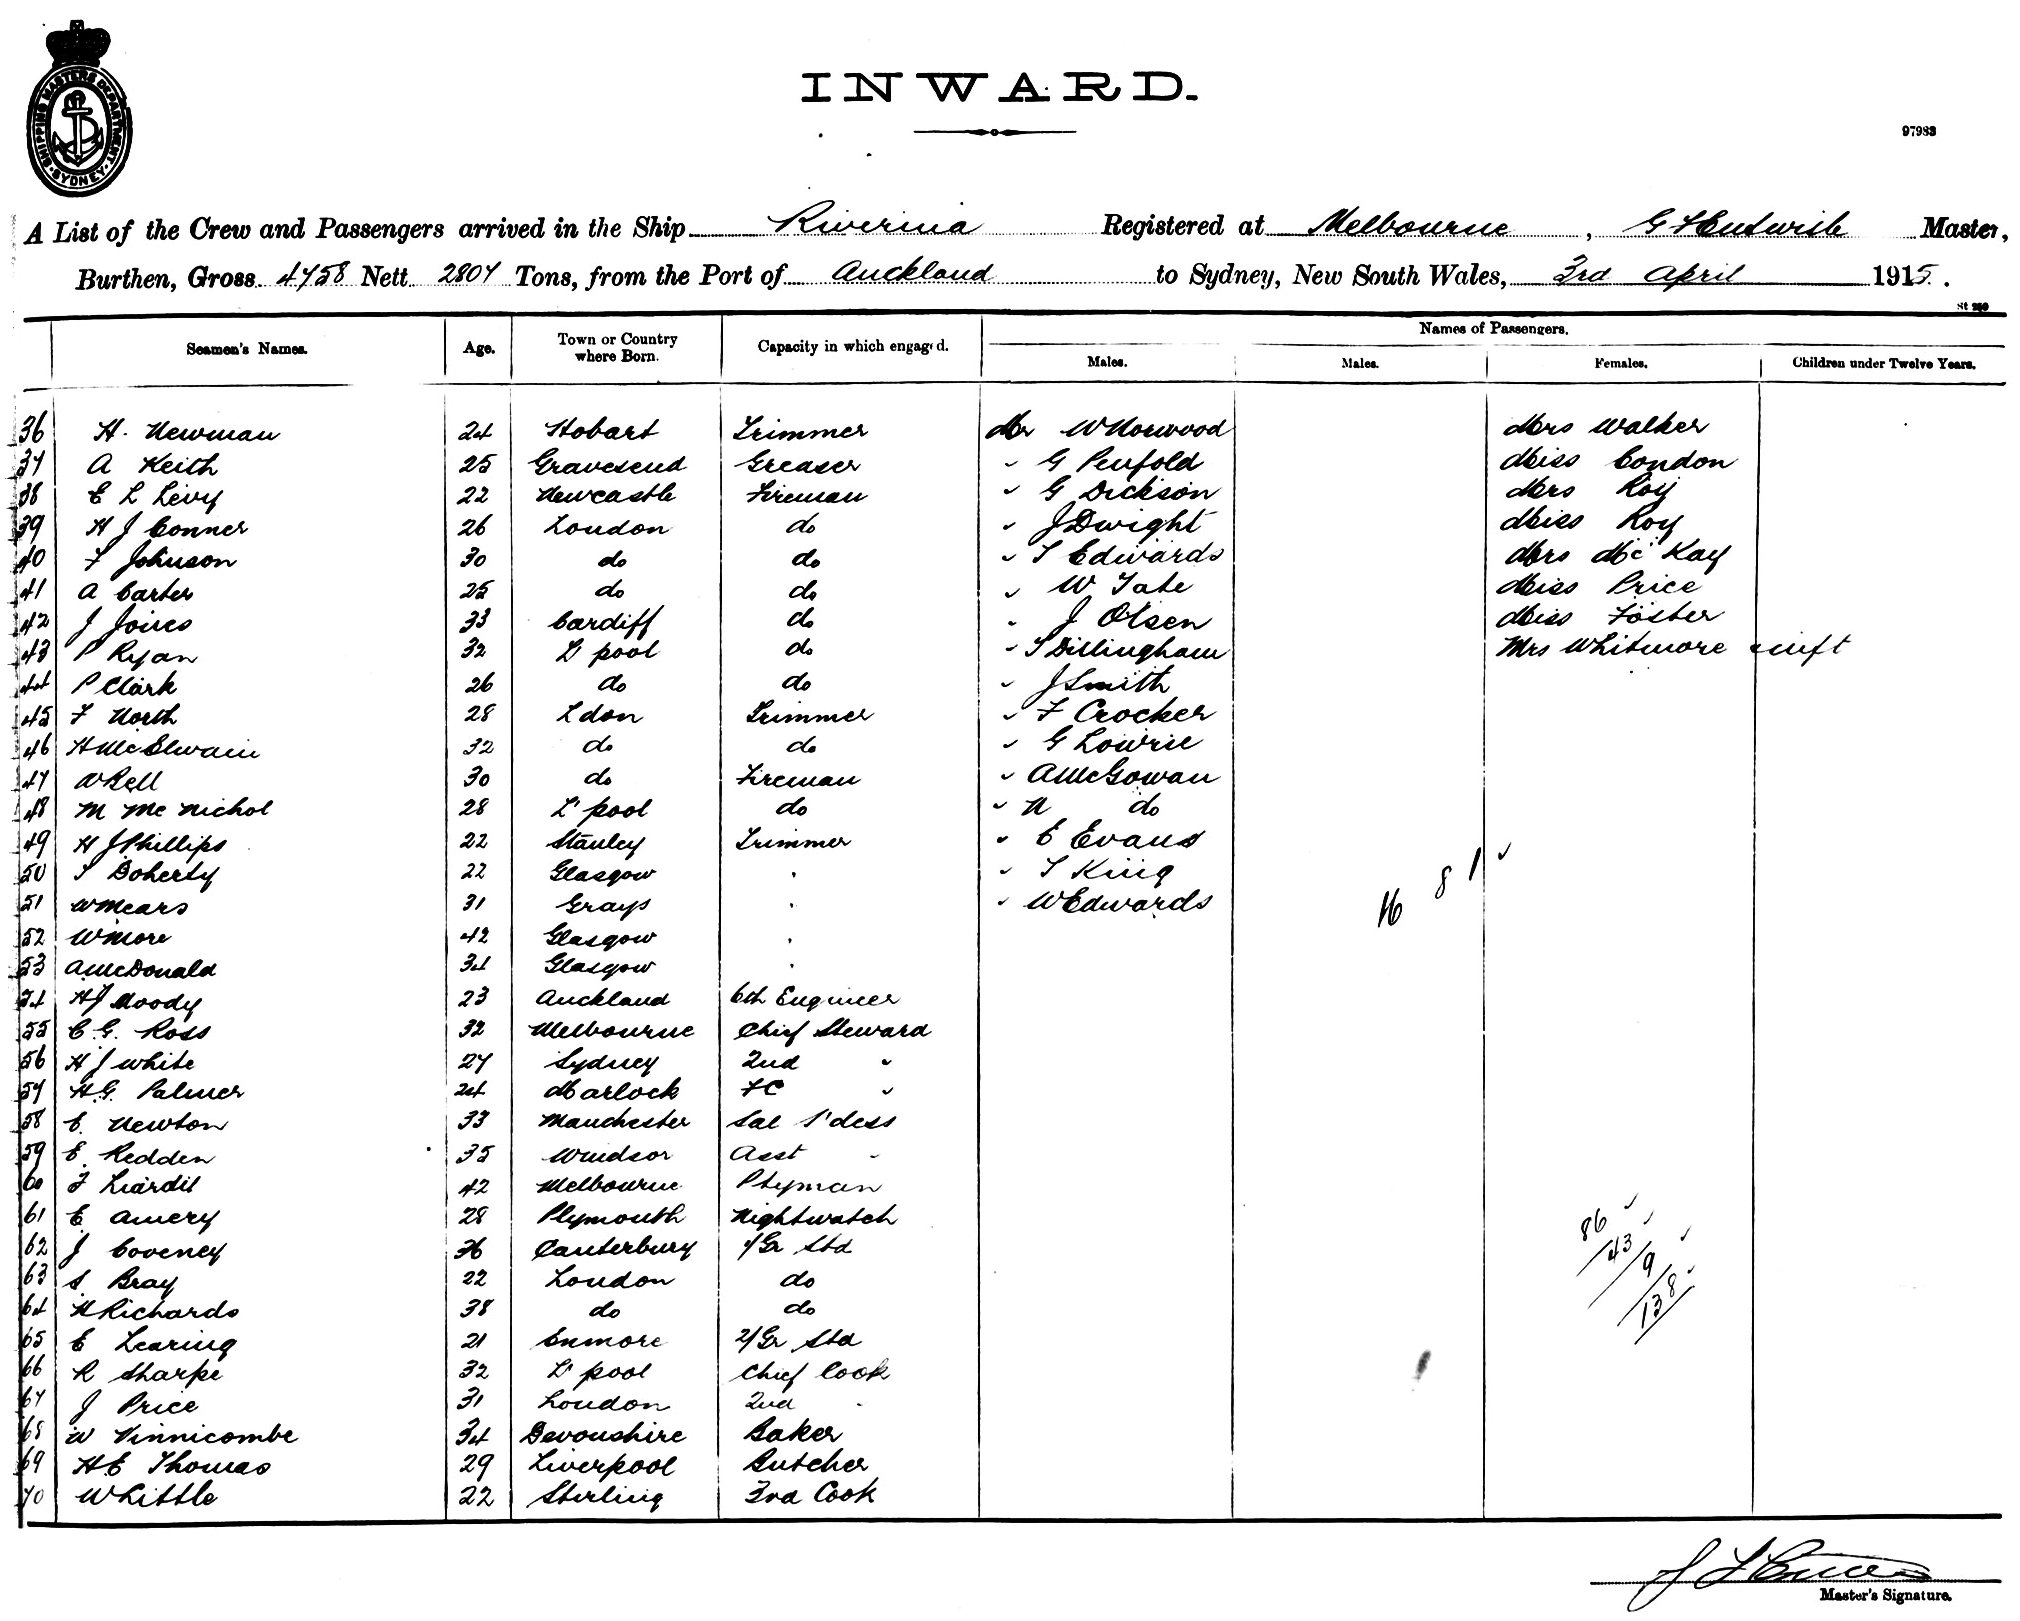 SHIPPING MASTERS DEPARTMENT SYDNEY
INWARD.
97983
A List of the Crew and Passengers arrived in the Ship Riverina Registered at Melbourne, Master,
Burthen, Gross 4758 Nett 2807 Tons, from the Port of Auckland to Sydney, New South Wales, 3rd April 1915.
Names of Passengers.
Seamen's Names. Age. Town or Country where Born. Capacity in which engaged. Males. Males. Females. Children under Twelve Years.
36 H. Newman 24 Hobart Trimmer Mr W Norwood Mrs Walker
37 A Keith 25 Gravesend Greaser " G Penfold Miss Condon
38 E L Levy 22 Newcastle Fireman " G Dickson Mrs Roy
39 H J Conner 26 London do " J Dwight Miss Roy
40 F Johnson 30 do do " T Edwards Mrs McKay
41 A Carter 25 do do " W Tate Miss Price
42 J Joires 33 Cardiff do " J Olsen Miss Foster
43 P Ryan 32 L'pool do " T Dillingham Mrs Whitmore & inft
44 P Clark 26 do do " J Smith
45 F North 28 Ldon Trimmer " F Crocker
46 H McElwain 32 do do " G Lowrie
47 30 do Fireman " A McGowan
48 M McNichol 28 L'pool do " N do
49 H J Phillips 22 Stanley Trimmer " E Evans
50 T Doherty 22 Glasgow " " T King
51 W Mears 31 Grays " " W Edwards
16 8 1
52 W More 42 Glasgow "
53 A McDonald 34 Glasgow "
54 H J Moody 23 Auckland 6th Engineer
55 C.G. Ross 32 Melbourne Chief Steward
56 H J White 27 Sydney 2nd "
57 H.G. Palmer 24 Marlock FC "
58 E. Newton 33 Manchester Sal S'dess
59 E. Redden 35 Windsor Asst "
60 F Liardit 42 Melbourne Ptyman
61 E Amery 28 Plymouth Nightwatch
62 J Coveney 36 Canterbury 1/Gr Std
63 S. Bray 22 London do
64 N Richards 38 do do
65 E Learing 21 Enmore 2/Gr Std
86
43
9
138
66 R Sharpe 32 L'pool Chief Cook
67 J Price 31 London 2nd "
68 W Vinnicombe 34 Devonshire Baker
69 H E Thomas 29 Liverpool Butcher
70 Whittle 22 Stirling 3rd Cook
Master's Signature.